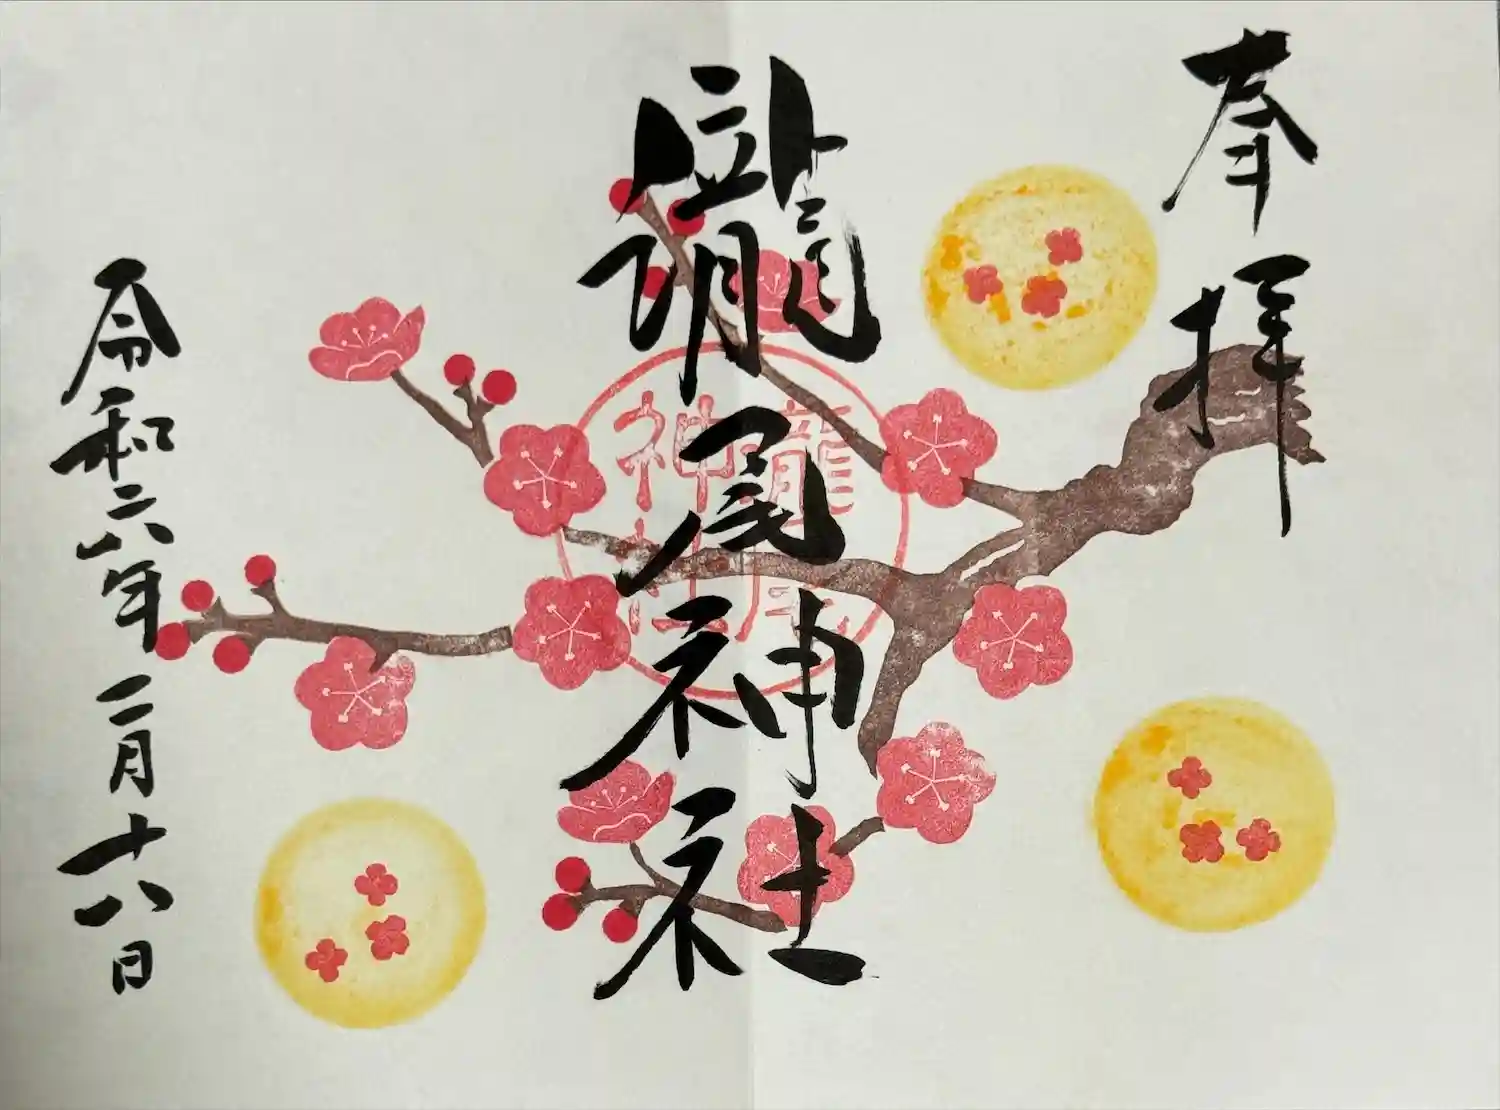 奉拝
龍尾神社
龍尾神社
令和六年二月十八日